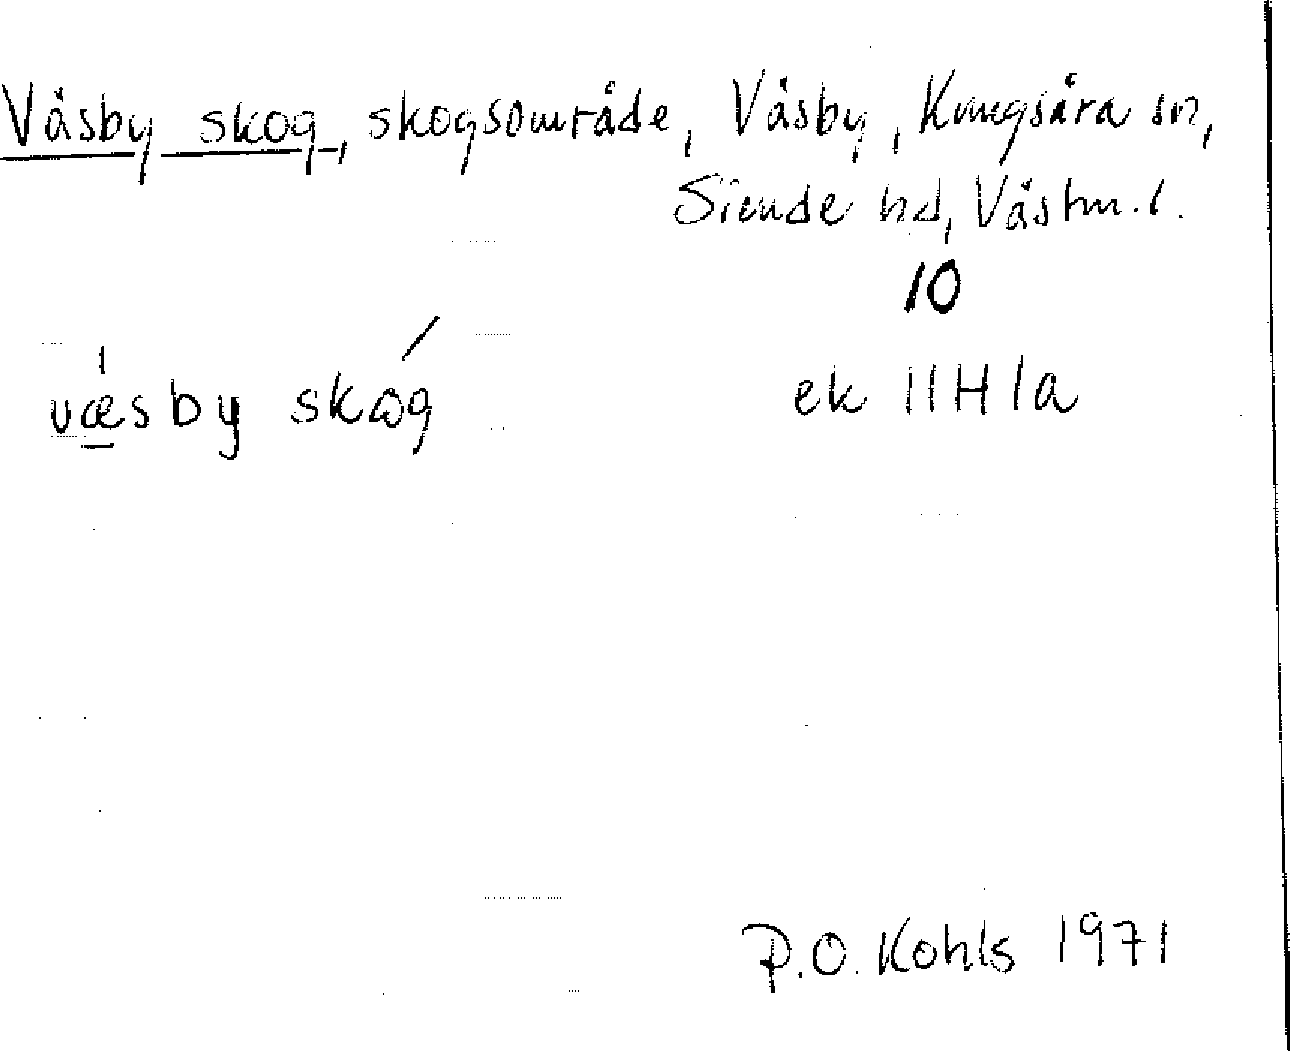 Väsby skog, skogsområde, Väsby, Kungsåra sn,
Siende hd, Västm. l.
10
væsby skog
ek 11H1a
P.O. Kohls 1971